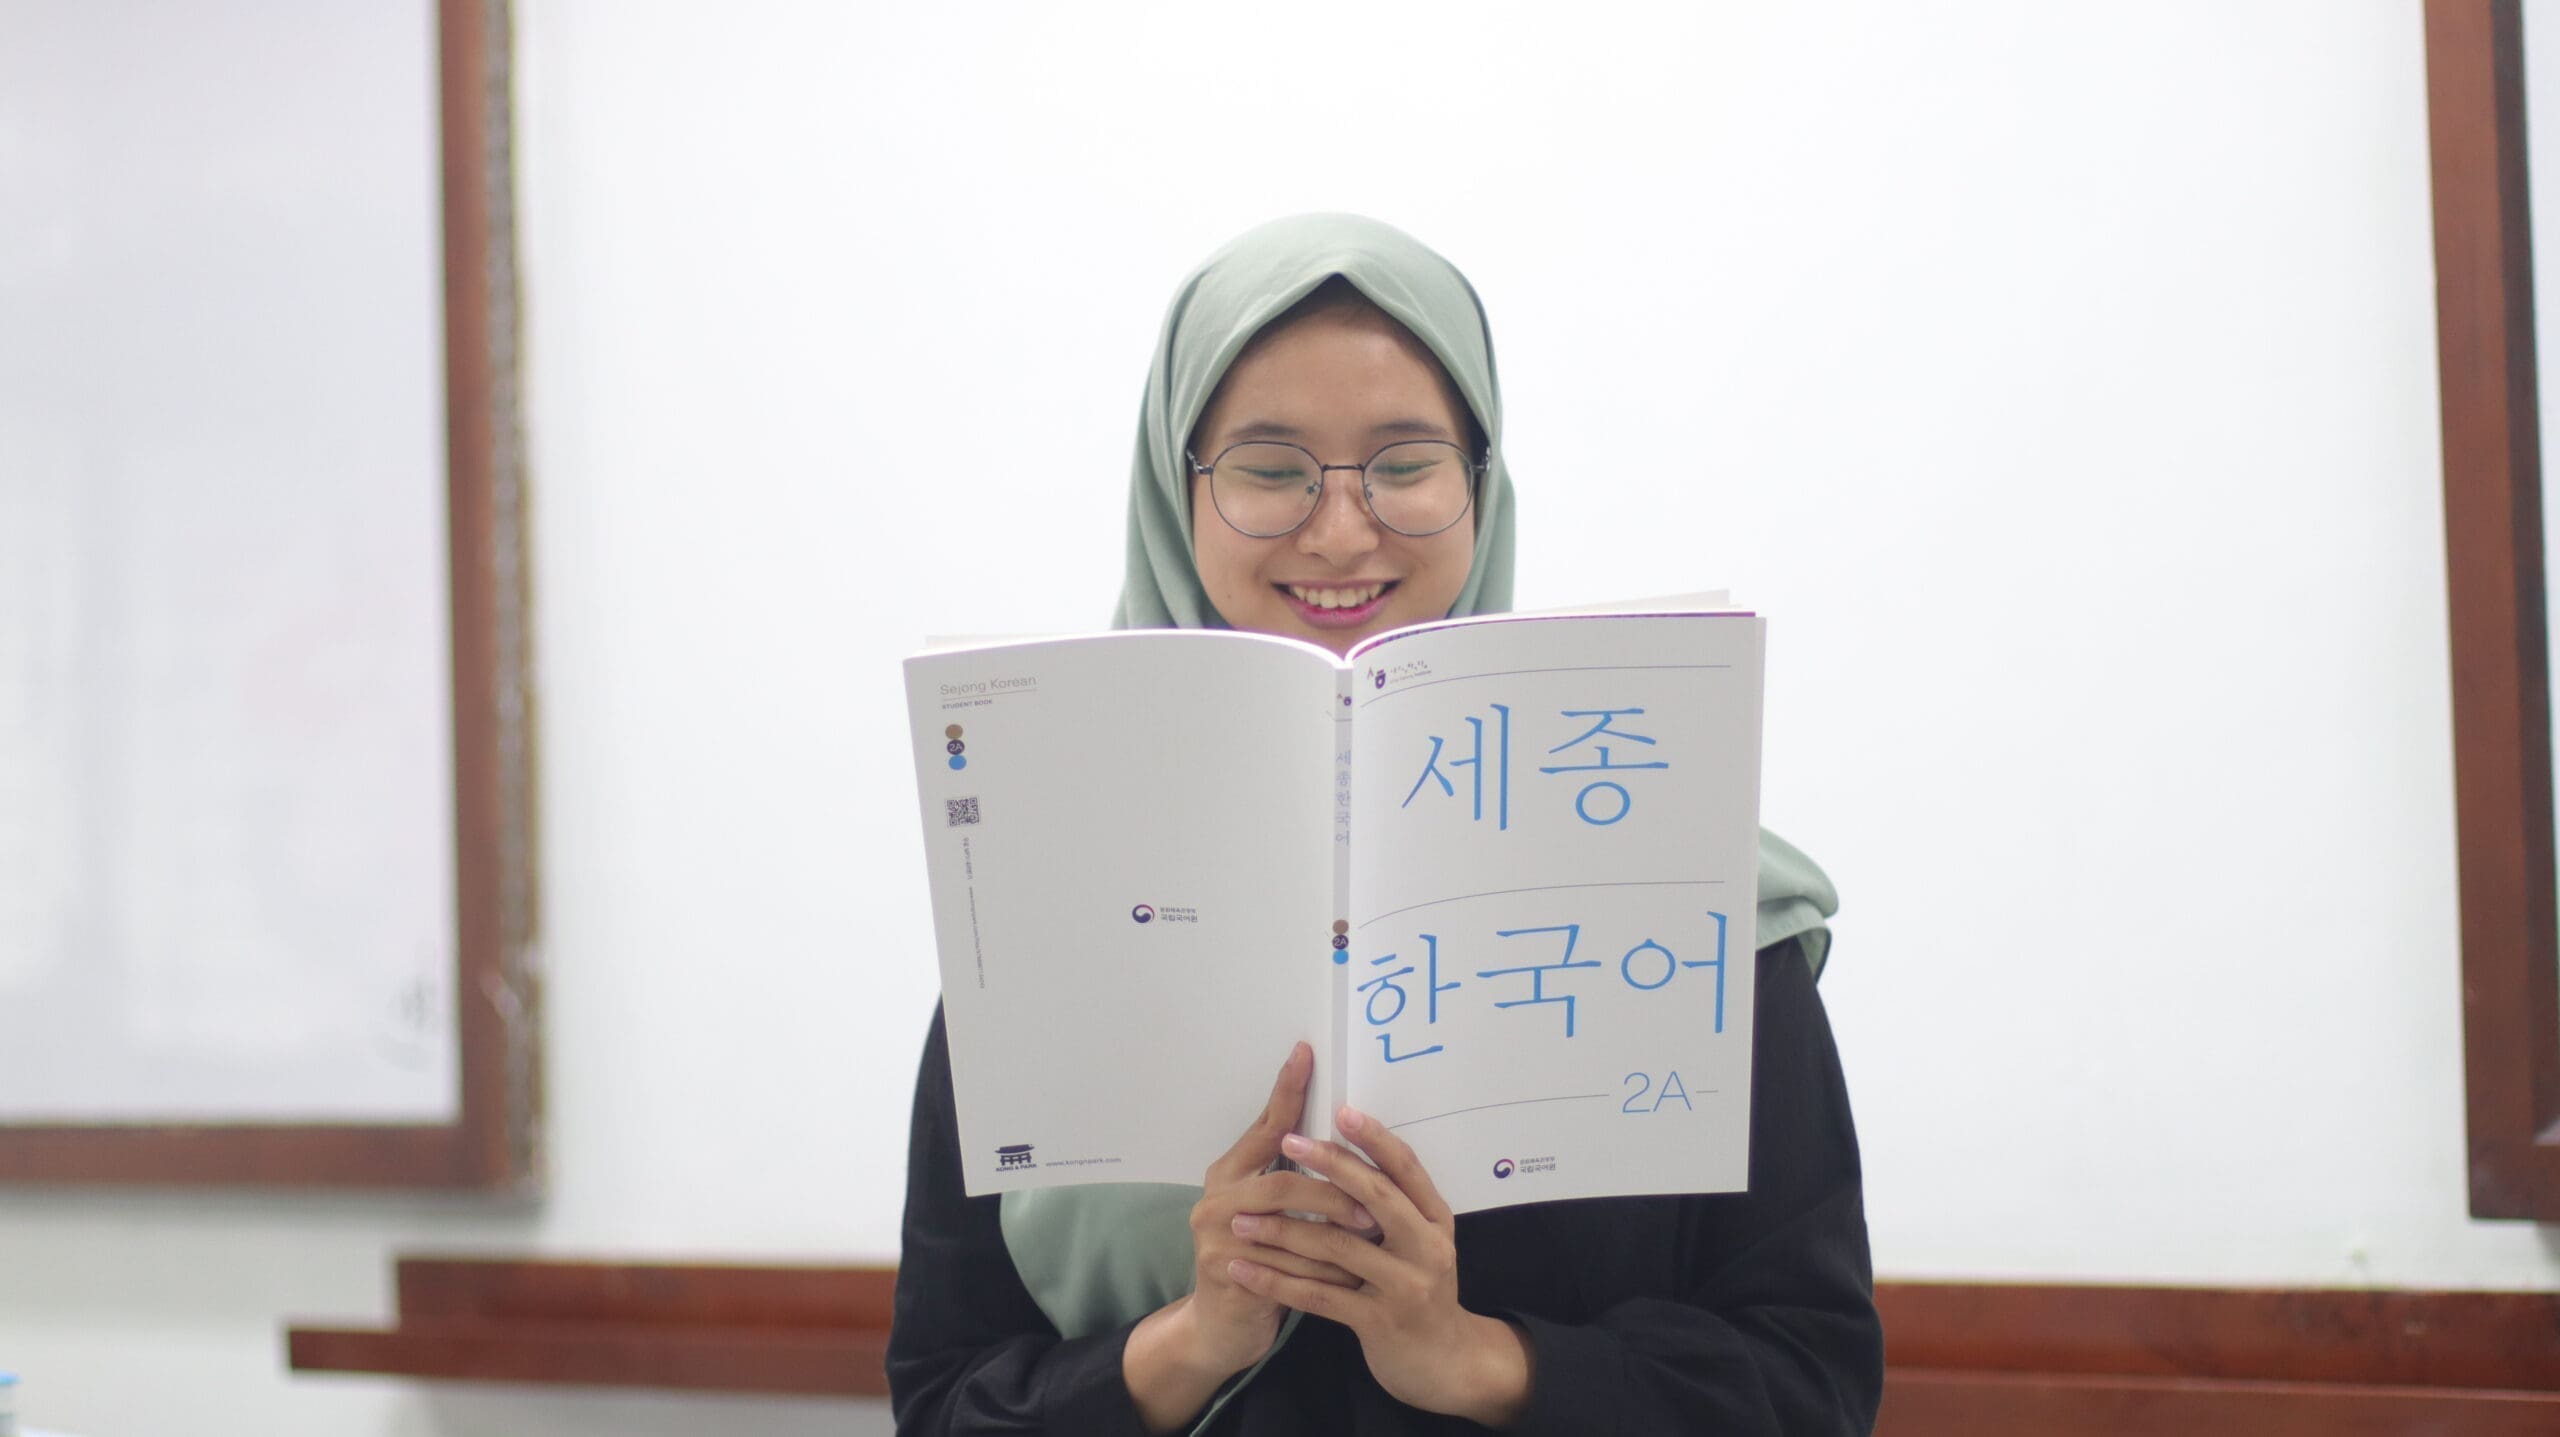 Sejong Korean
STUDENT BOOK
2A
문화체육관광부
국립국어원
KONG & PARK
www.kongnpark.com
세종한국어
2A
세종
한국어
2A
문화체육관광부
국립국어원